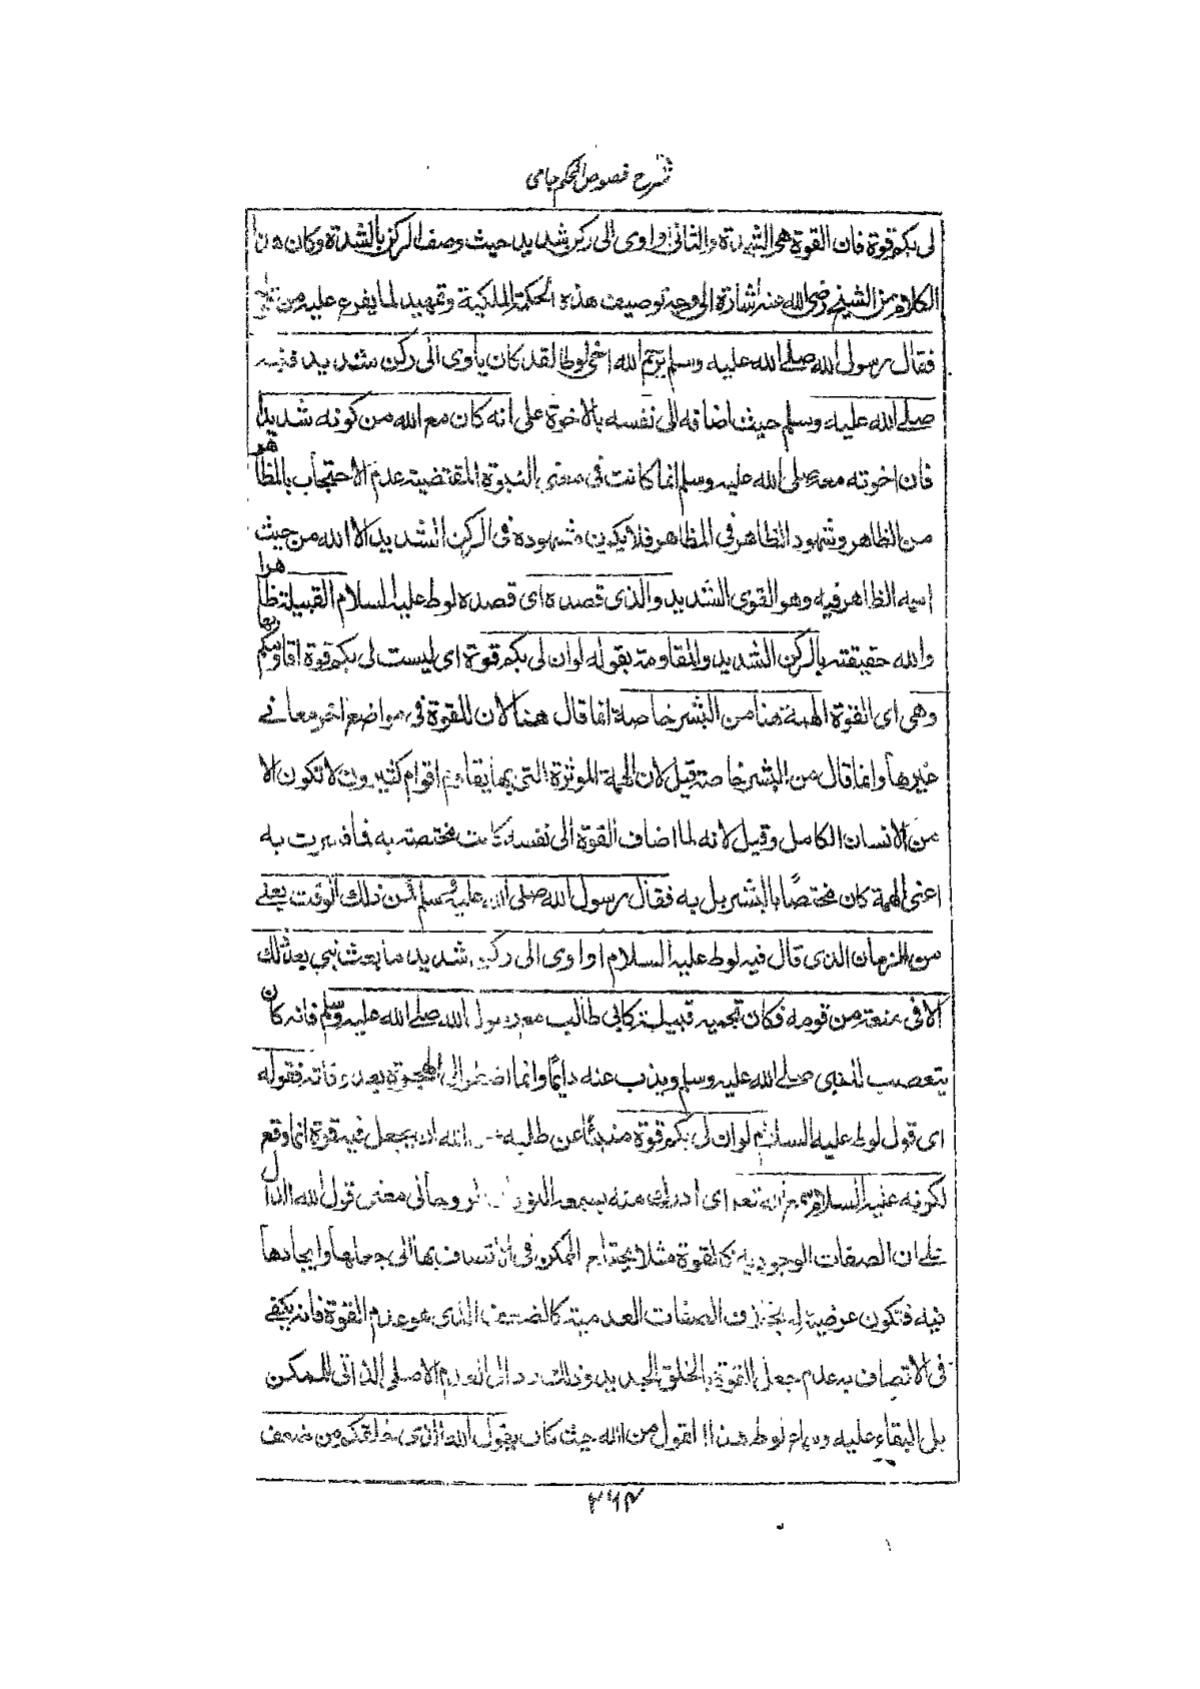 شرح فصوص الحكم جامى
لى بكم قوة فان القوة هى الشدة والثانى او اوى الى ركن شديد حيث وصف الركن بالشدة وكان هذا
الكلام من الشيخ رضى الله عنه اشارة الى وجه توصيف هذه الحكمة الملكية وتمهيد لما يفرع عليه من
فقال رسول الله صلے الله عليه وسلم يرحم الله اخى لوطا لقد كان ياوى الى ركن شديد فنبه
صلے الله عليه وسلم حيث اضافه الى نفسه بالاخوة على انه كان مع الله من كونه شديدا
فان اخوته معه صلى الله عليه وسلم انما كانت فى معنى النبوة المقتضية عدم الاحتجاب بالمظاهر
من الظاهر وشهود الظاهر فى المظاهر فلا يكون مشهوده فى الركن الشديد الا الله من حيث
اسمه الظاهر فيه وهو القوى الشديد والذى قصده اى قصده لوط عليه السلام القبيلة ظاهرا
والله حقيقته بالركن الشديد والمقاومة بقوله لو ان لى بكم قوة اى ليست لى بكم قوة اقاومكم بها
وهى اى القوة الهمة هنا من البشر خاصة انما قال هنا لان للقوة فى مواضع اخر معانے
غيرها وانما قال من البشر خاصة قيل لان الهمة الموثرة التى بها يقاوم اقوام كثيرون لا تكون الا
من الانسان الكامل وقيل لانه لما اضاف القوة الى نفسه كانت مختصة به فما فسرت به
اعنى الهمة كان مختصًا بالبشر بل به فقال رسول الله صلى الله عليه وسلم فمن ذلك الوقت يعنے
من الزمان الذى قال فيه لوط عليه السلام او اوى الى ركن شديد ما بعث نبى بعد ذلك
الا فى منعة من قومه فكان تحميه قبيلة كابى طالب مع رسول الله صلے الله عليه وسلم فانه كان
يتعصب للنبى صلے الله عليه وسلم ويذب عنه دائمًا وانما اضطر الى الهجرة بعد وفاته فقوله
اى قول لوط عليه السلام لو ان لى بكم قوة منبئًا عن طلبه من الله ان يجعل فيه قوة انما وقع
لكونه عليه السلام سمع الله تعه اى ادرك منه بسمعه الروحانى معنى قول الله الدال
علے ان الصفات الوجودية كالقوة مثلا يحتاج الممكن فى الاتصاف بها الى جعلها وايجادها
فيه فتكون عرضية له بخلاف الصفات العدمية كالضعف الذى هو عدم القوة فانه يكفے
فى الاتصاف به عدم جعل القوة بالخلق الجديد وذلك رد الى العدم الاصلى الذاتى للممكن
بل البقاء عليه وسماع لوط هذا القول من الله حيث كان يقول الله الذى خلقكم من ضعف
۲۶۴